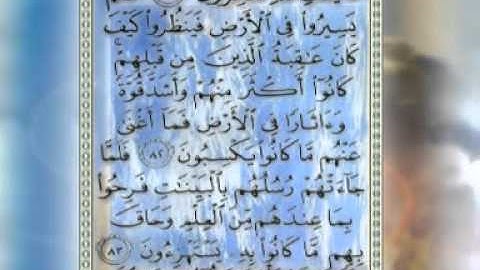 يَسِيرُوا۟ فِى ٱلْأَرْضِ فَيَنظُرُوا۟ كَيْفَ
كَانَ عَٰقِبَةُ ٱلَّذِينَ مِن قَبْلِهِمْ
كَانُوٓا۟ أَكْثَرَ مِنْهُمْ وَأَشَدَّ قُوَّةً
وَءَاثَارًا فِى ٱلْأَرْضِ فَمَآ أَغْنَىٰ
عَنْهُم مَّا كَانُوا۟ يَكْسِبُونَ ٨٢ فَلَمَّا
جَآءَتْهُمْ رُسُلُهُم بِٱلْبَيِّنَٰتِ فَرِحُوا۟
بِمَا عِندَهُم مِّنَ ٱلْعِلْمِ وَحَاقَ
بِهِم مَّا كَانُوا۟ بِهِۦ يَسْتَهْزِءُونَ ٨٣